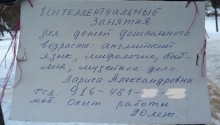 ИНТЕЛЛЕКТУАЛЬНЫЕ
ЗАНЯТИЯ
для детей дошкольного
возраста: английский
язык, мифология, библия,
музейное дело.
Лариса Александровна
тел. 916-481-
моб. Опыт работы
20 лет.